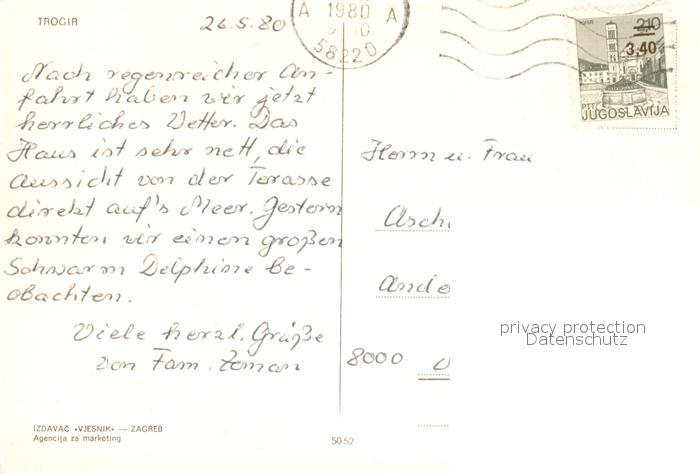 TROGIR
26.5.80
A 1980 A
58220
HVAR
210
3,40
PTT
JUGOSLAVIJA
Nach regenreicher An-
fahrt haben wir jetzt
herrliches Wetter. Das
Haus ist sehr nett, die
Aussicht von der Terasse
direkt auf's Meer. Gestern
konnten wir einen großen
Schwarm Delphine be-
obachten.
Viele herzl. Grüße
von Fam. Zeman
Herrn u. Frau
8000
privacy protection
Datenschutz
IZDAVAČ «VJESNIK» — ZAGREB
Agencija za marketing
50 52